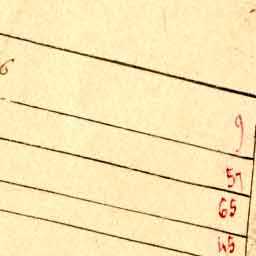 6
9
57
65
45